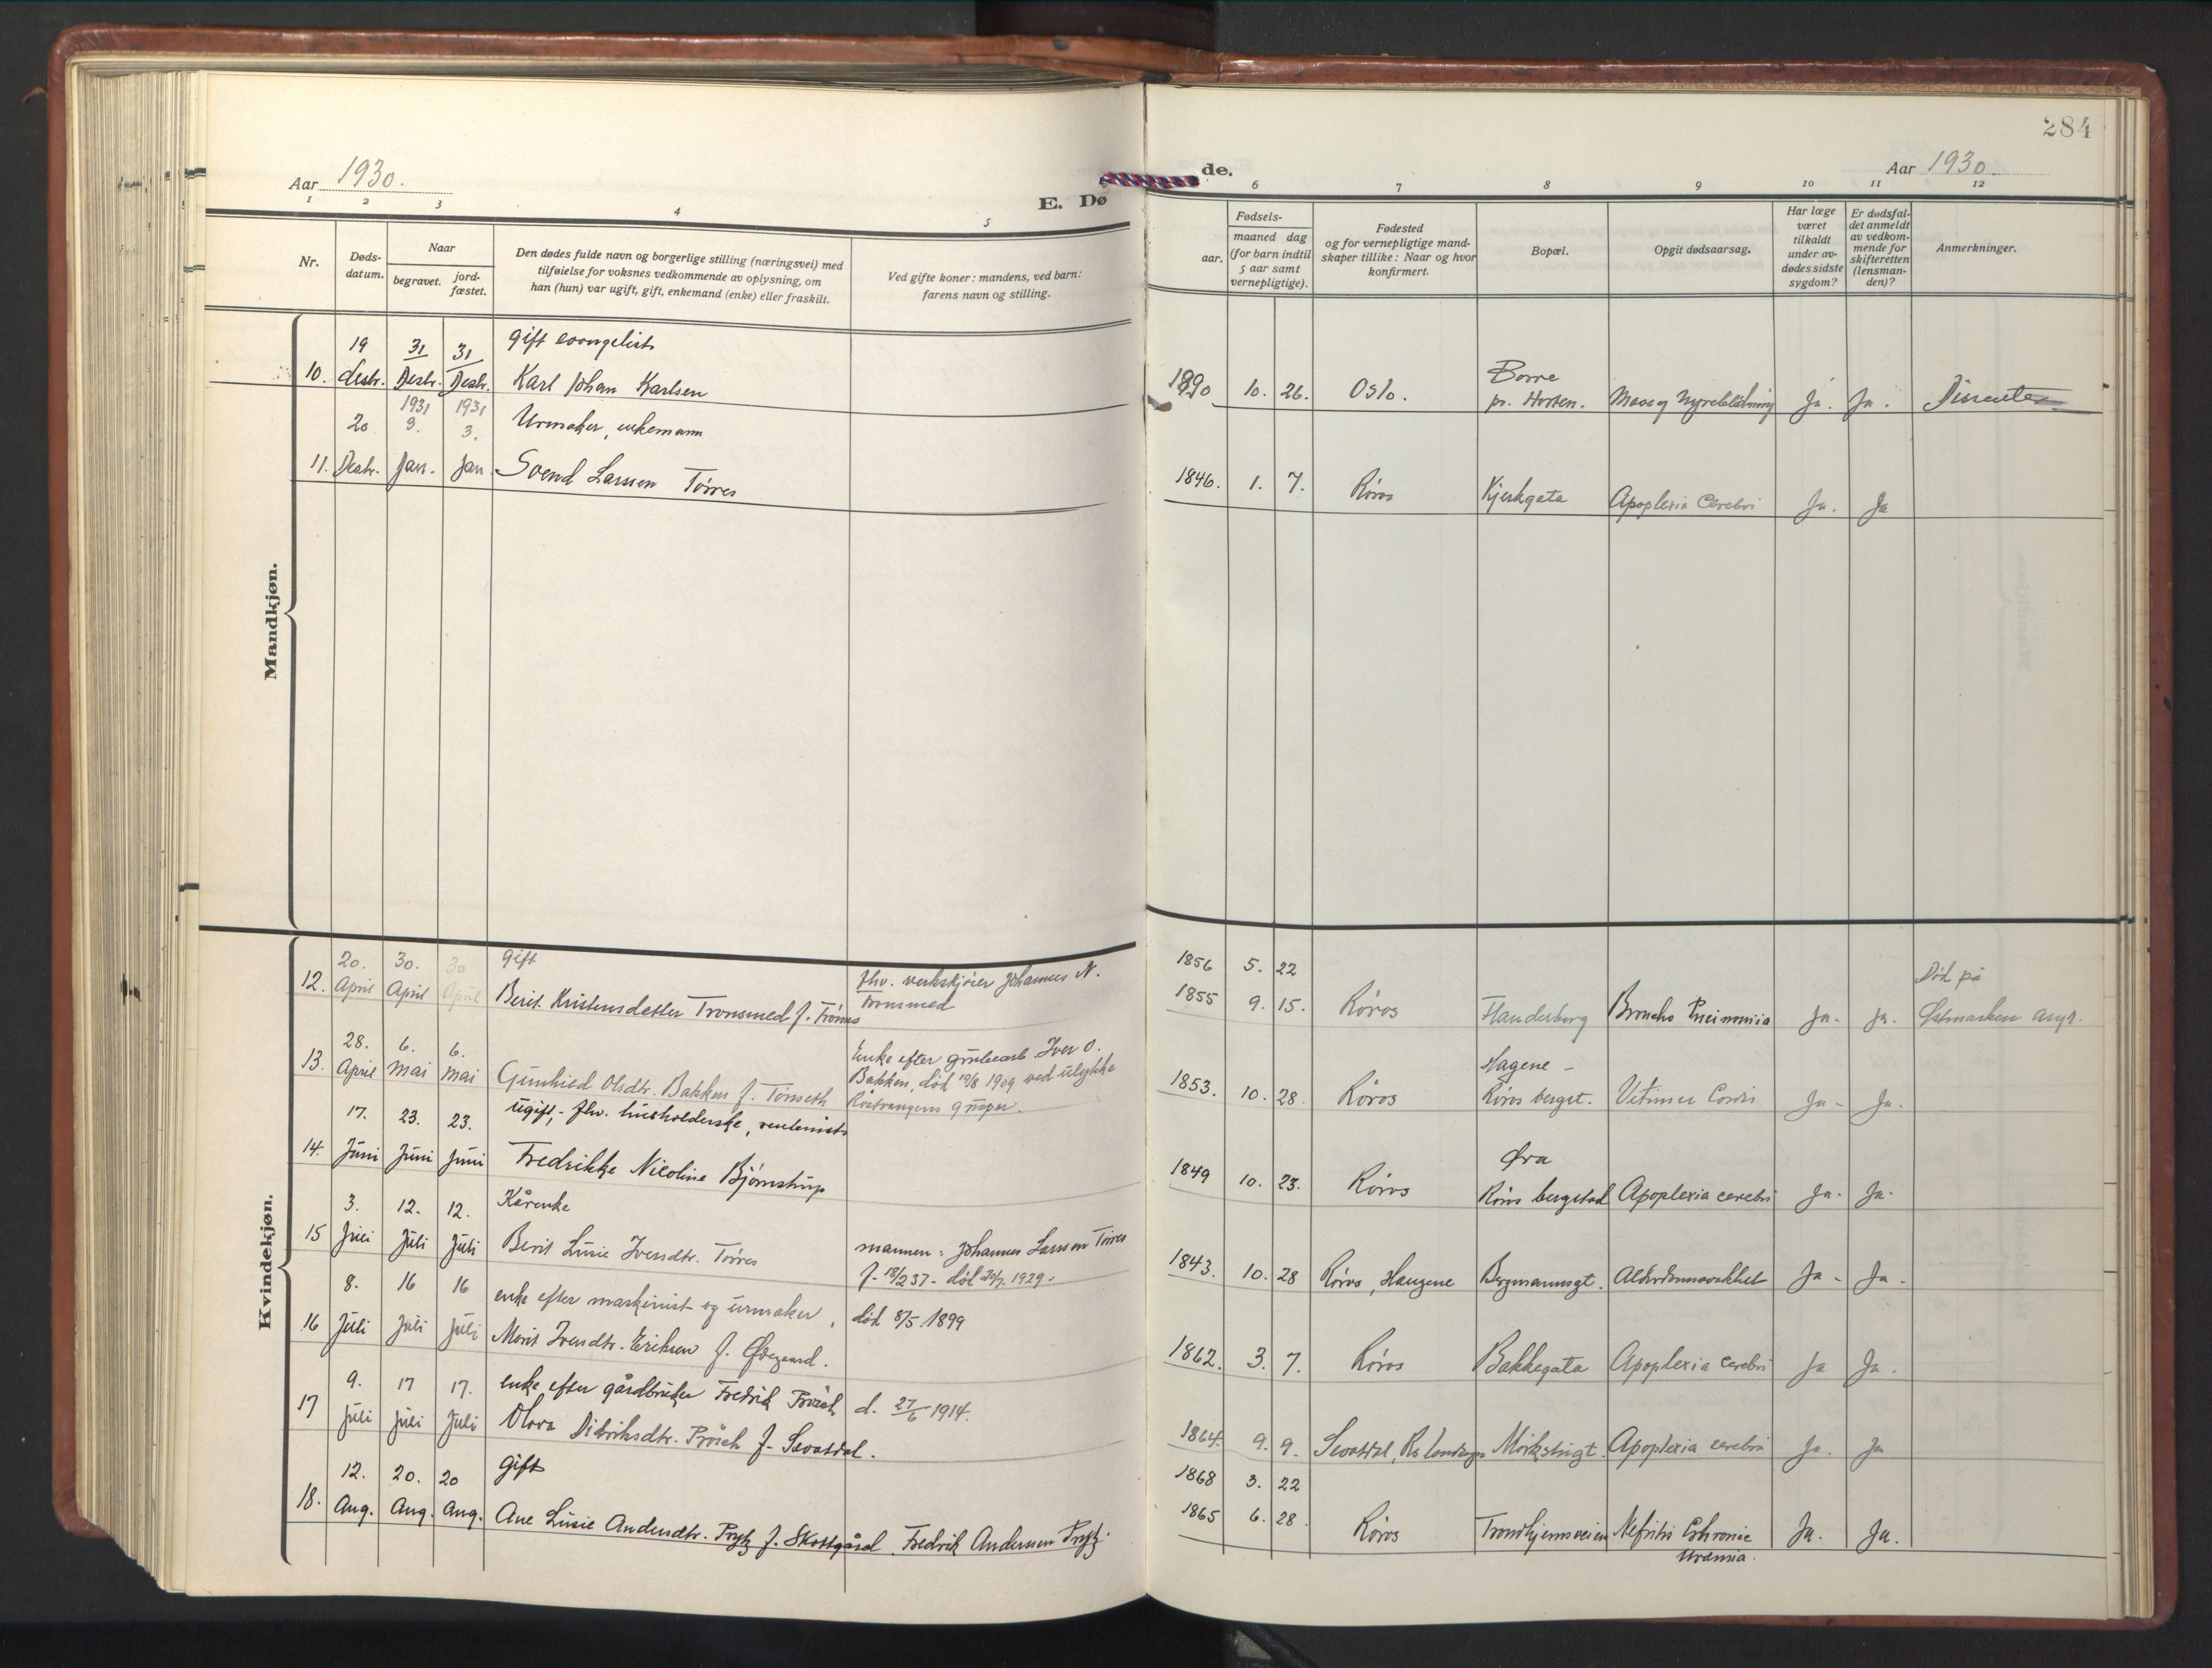 284
Aar 1930.
E. Dø
de.
Aar 1930.
1 2 3 4 5
6 7 8 9 10 11 12
Nr.
Døds-
datum.
Naar
begravet.
jord-
fæstet.
Den dødes fulde navn og borgerlige stilling (næringsvei) med
tilføielse for voksnes vedkommende av oplysning, om
han (hun) var ugift, gift, enkemand (enke) eller fraskilt.
Ved gifte koner: mandens, ved barn:
farens navn og stilling.
Fødsels-
aar.
maaned dag
(for barn indtil
5 aar samt
vernepligtige).
Fødested
og for vernepligtige mand-
skaper tillike: Naar og hvor
konfirmert.
Bopæl.
Opgit dødsaarsag.
Har læge
været
tilkaldt
under av-
dødes sidste
sygdom?
Er dødsfal-
det anmeldt
av vedkom-
mende for
skifteretten
(lensman-
den)?
Anmerkninger.
Mandkjøn.
19 31 31 gift evangelist
10. desbr. Desbr. Desbr. Karl Johan Karlsen
1890 10. 26. Oslo.
Borre
pr. Horten.
Ja. Ja. Dissenter
1931 1931
20 3. 3. Urmaker, enkemann
11. Desbr. Jan. Jan. Svend Larssen Torres
1846. 1. 7. Røros Kjerkgata Apoplexia Cerebri Ja. Ja
Kvindekjøn.
20. 30. 30 gift
12. April April April Berit Kristensdatter Tronsmed f.
fhv. verkskjører Johannes N.
Tronsmed
1856 5. 22
1855 9. 15. Røros Flanderborg Broncho Pneimonia Ja. Ja.
Død på
Østmarken asyl.
28. 6. 6.
13. April Mai Mai Gunhild Olsdtr. Bakken f. Tønseth
Enke efter grubearb. Iver O.
Bakken, død 19/8 1909 ved ulykke
1853. 10. 28. Røros
Hagene -
Røros bergst. Vitium Cordis Ja - Ja.
17. 23. 23. ugift, - fhv. husholderske, rentenist
14. Juni Juni Juni Fredrikke Nicoline Bjørnstrup
1849 10. 23. Røros
Øra
Røros bergstad Apoplexia cerebri Ja. Ja.
3. 12. 12. Kårenke
15 Juli Juli Juli Berit Lusie Iversdtr. Torres
mannen: Johannes Larssen Torres
f. 18/2 37 - død 1929.
1843. 10. 28 Røros, Haugene Bergmannsgt. Alderdomssvakhet Ja - Ja -
8. 16 16 enke efter maskinist og urmaker, død 8/5 1899
16 Juli Juli Juli Marit Iversdtr. Eriksen f. Ødegaard.
1862. 3. 7. Røros Bakkegata Apoplexia cerebri Ja Ja.
9. 17 17. enke efter gårdbruker Fredrik Prøsch d. 27/6 1914.
17 Juli Juli Juli Olava Didriksdtr. Prøsch f. Sevatdal.
1864. 9. 9. Sevatdal, Rs landsogn Mørkstugt. Apoplexia cerebri Ja. Ja
12. 20. 20 gift
18. Aug. Aug. Aug. Ane Lusie Andersdtr. Prytz f. Skottgård. Fredrik Anderssen Prytz.
1868 3. 22
1865 6. 28. Røros Trondhjemsveien Nefritis Chronic Ja. Ja.
Urämia.